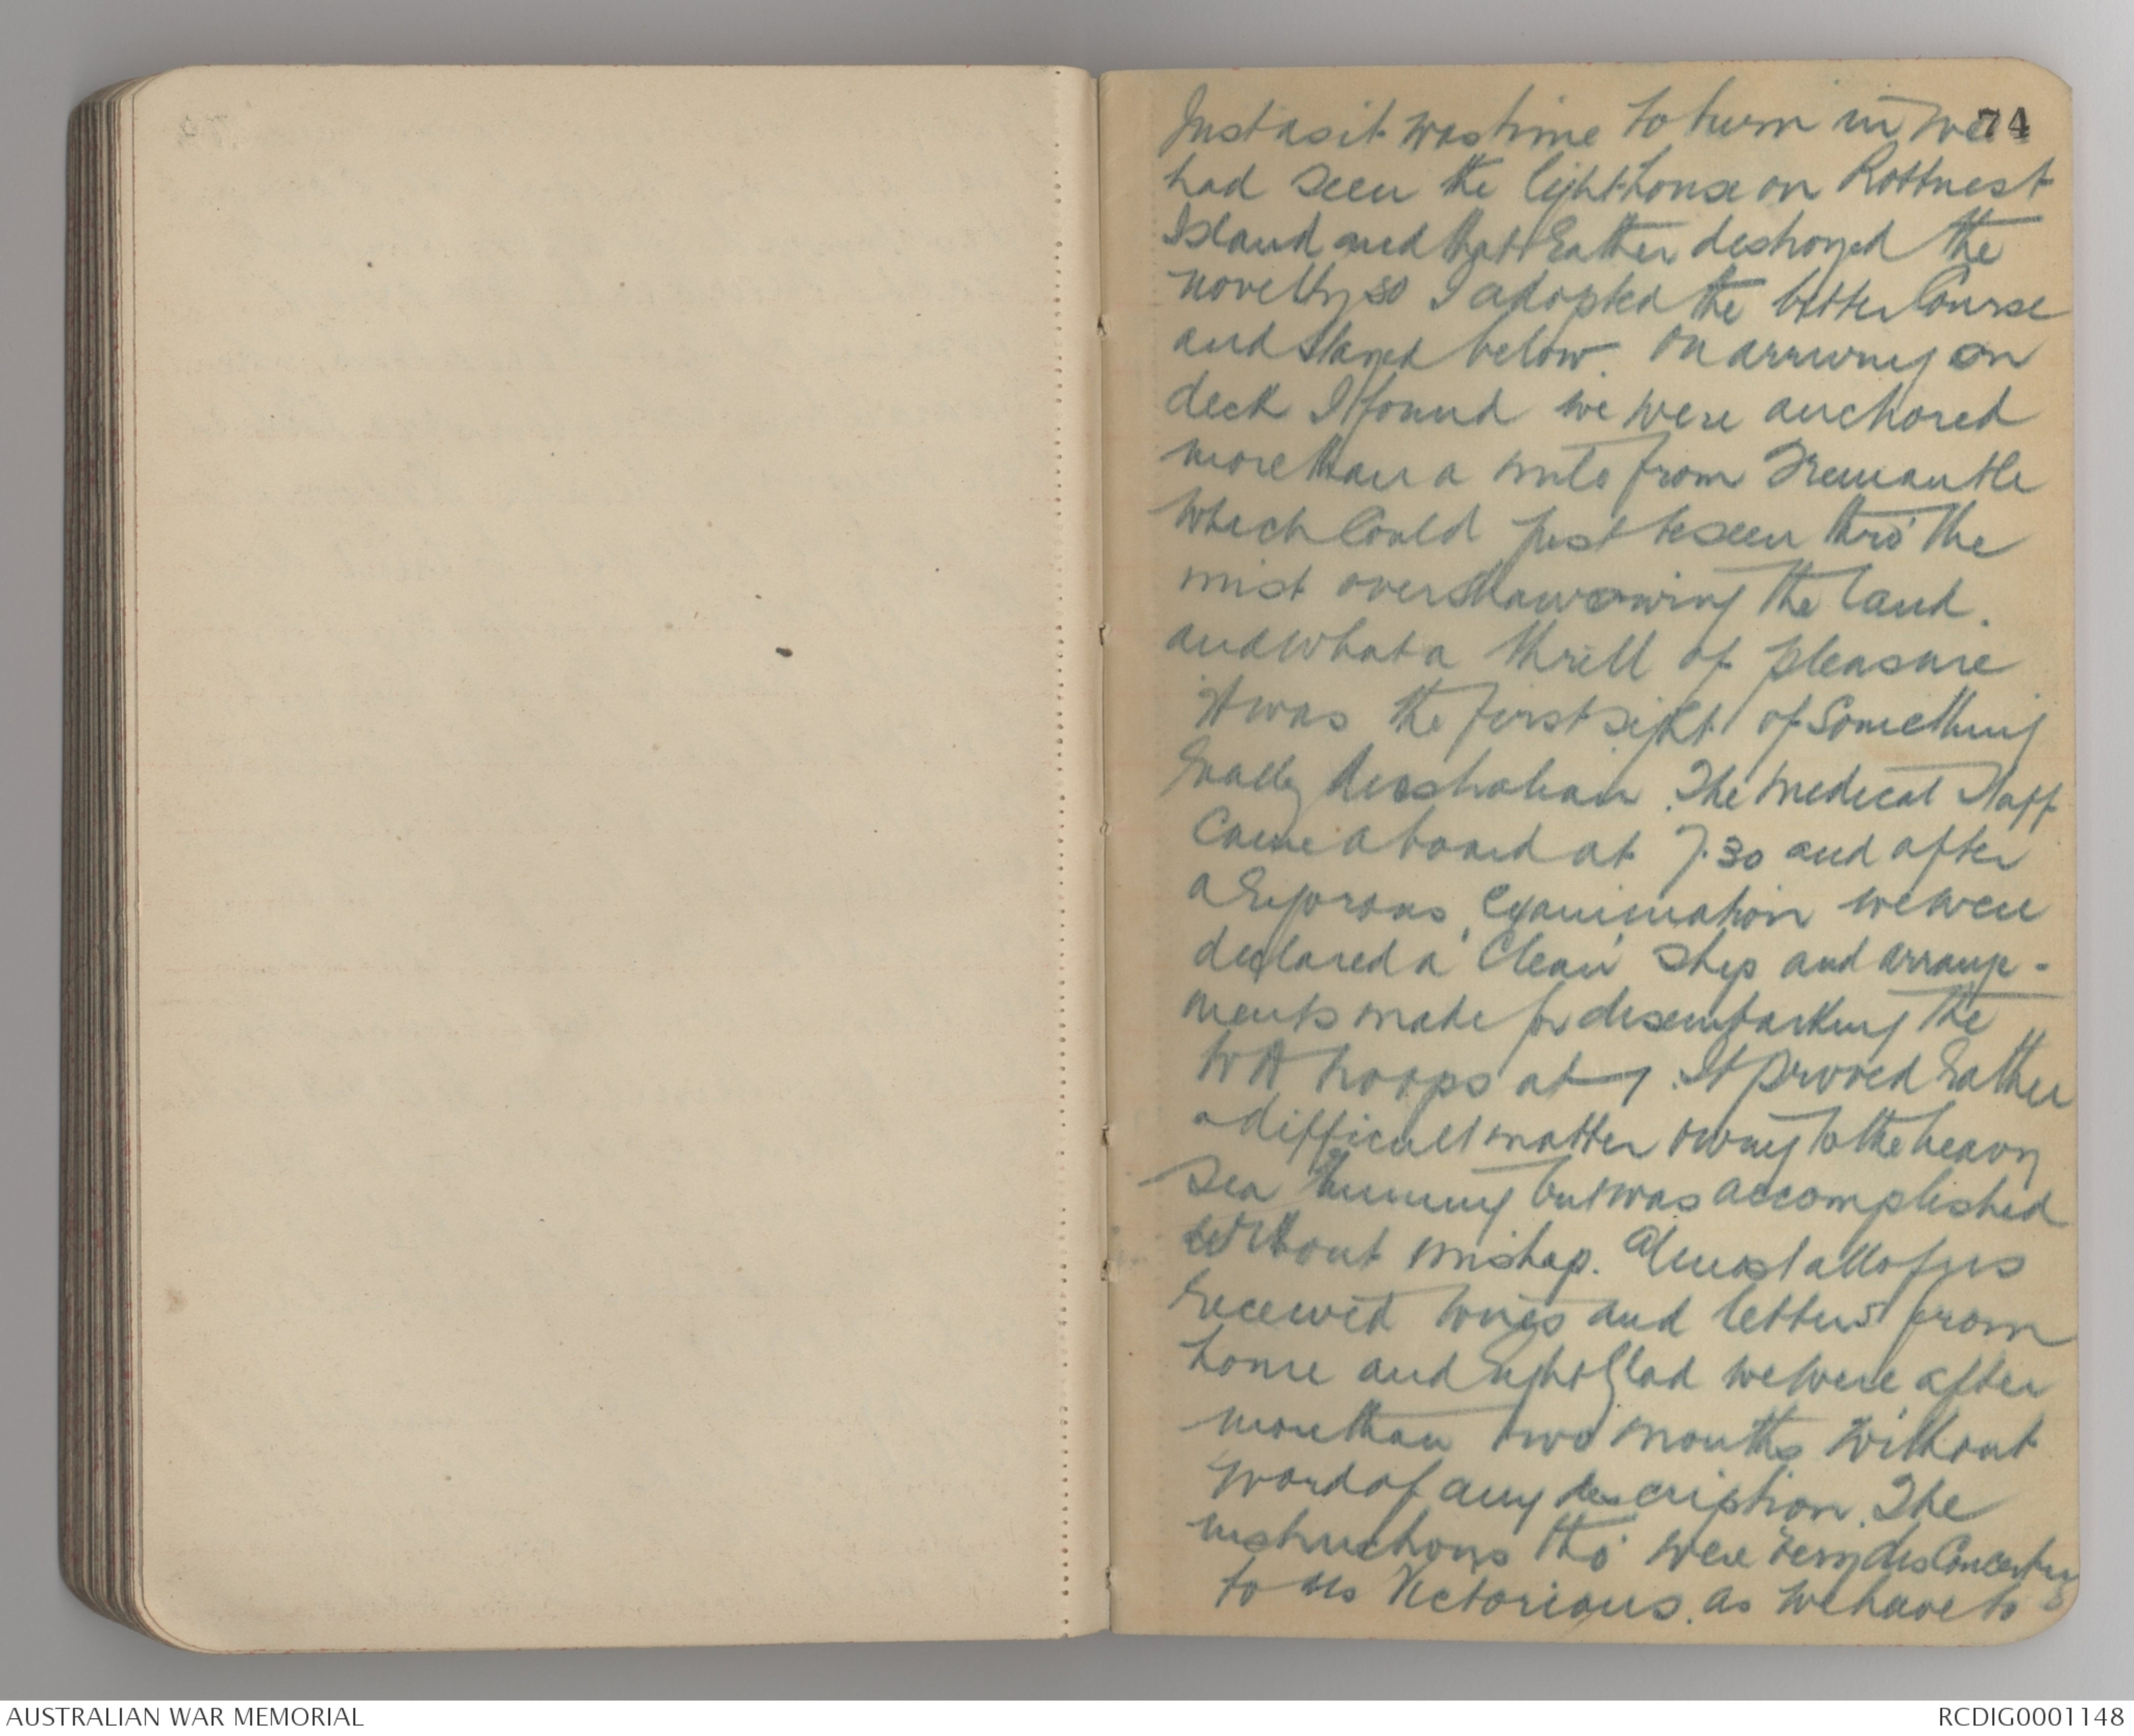 74
Just as it was time to turn in we
had seen the lighthouse on Rottnest
Island and that rather destroyed the
novelty so I adopted the better Course
and stayed below. On arriving on
deck I found we were anchored
more than a mile from Fremantle
which Could just be seen thro' the
mist the land.
and what a thrill of pleasure
it was the first sight of Something
really Australian. The Medical Staff
Came aboard at 7.30 and after
a rigorous examination we were
declared a 'Clean' ship and arrange-
ments made for disembarking the
WA troops at 1. It proved rather
a difficult matter owing to the heavy
sea running but was accomplished
without mishap. Almost all of us
received wires and letters from
home and right glad we were after
more than two months without
word of any description. The
instructions tho' were very disConcerting
to us Victorians. as we have to
AUSTRALIAN WAR MEMORIAL
RCDIG0001148